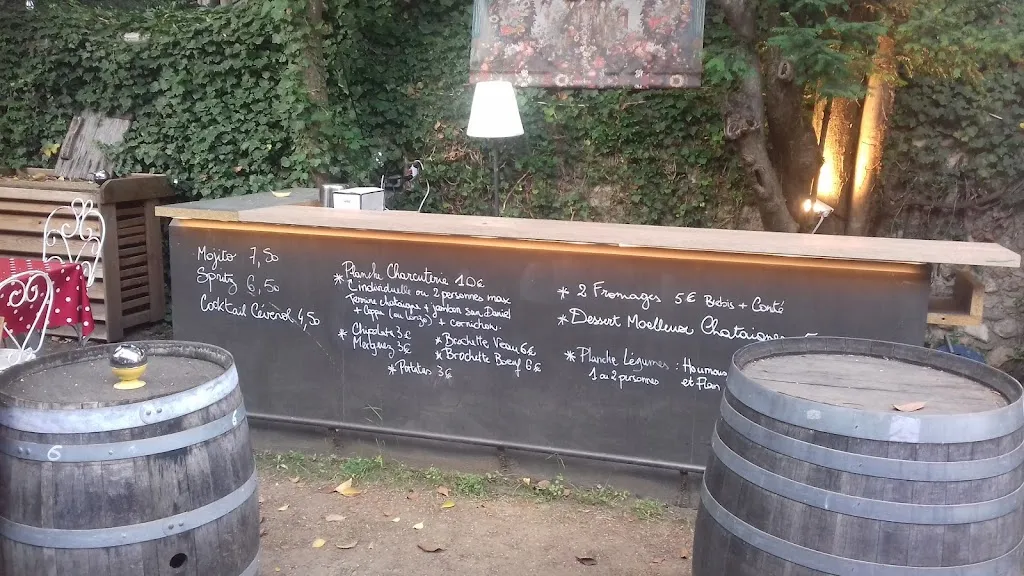 Mojito 7,50
Spritz 6,50
Cocktail Cévenol 4,50
* Planche Charcuterie 10€
individuelle ou 2 personnes max
Terrine chataigne + jambon San Daniel
+ Coppa (ou Lonzo) + cornichon.
* Chipolata 3€
* Merguez 3€
* Brochette Veau 6€
* Brochette Boeuf 6€
* Potatoes 3€
* 2 Fromages 5€ Brebis + Comté
* Dessert Moelleux Chataigne
* Planche Légumes : Houmous
1 ou 2 personnes et Flan
6
6